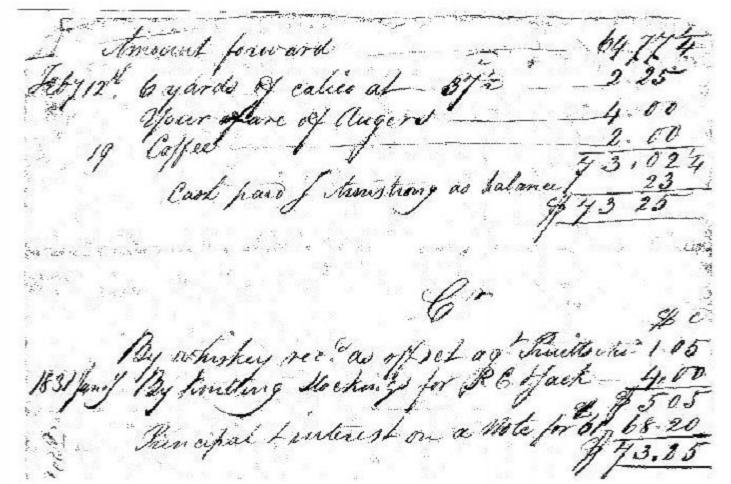 Amount forward 64.77 1/4
Feby 12th. 6 yards of calico at 37 1/2 2 25
Your share of Augers 4.00
19 Coffee 2.00
73.02 1/4
Cash paid J Armstrong as balance 23
$73 25
Cr
$ c
By whiskey recd. as offset agt 1.05
1831 By knitting Stockings for R C Jack 4.00
$5 05
Principal & interest on a Note for 68.20
$73.25